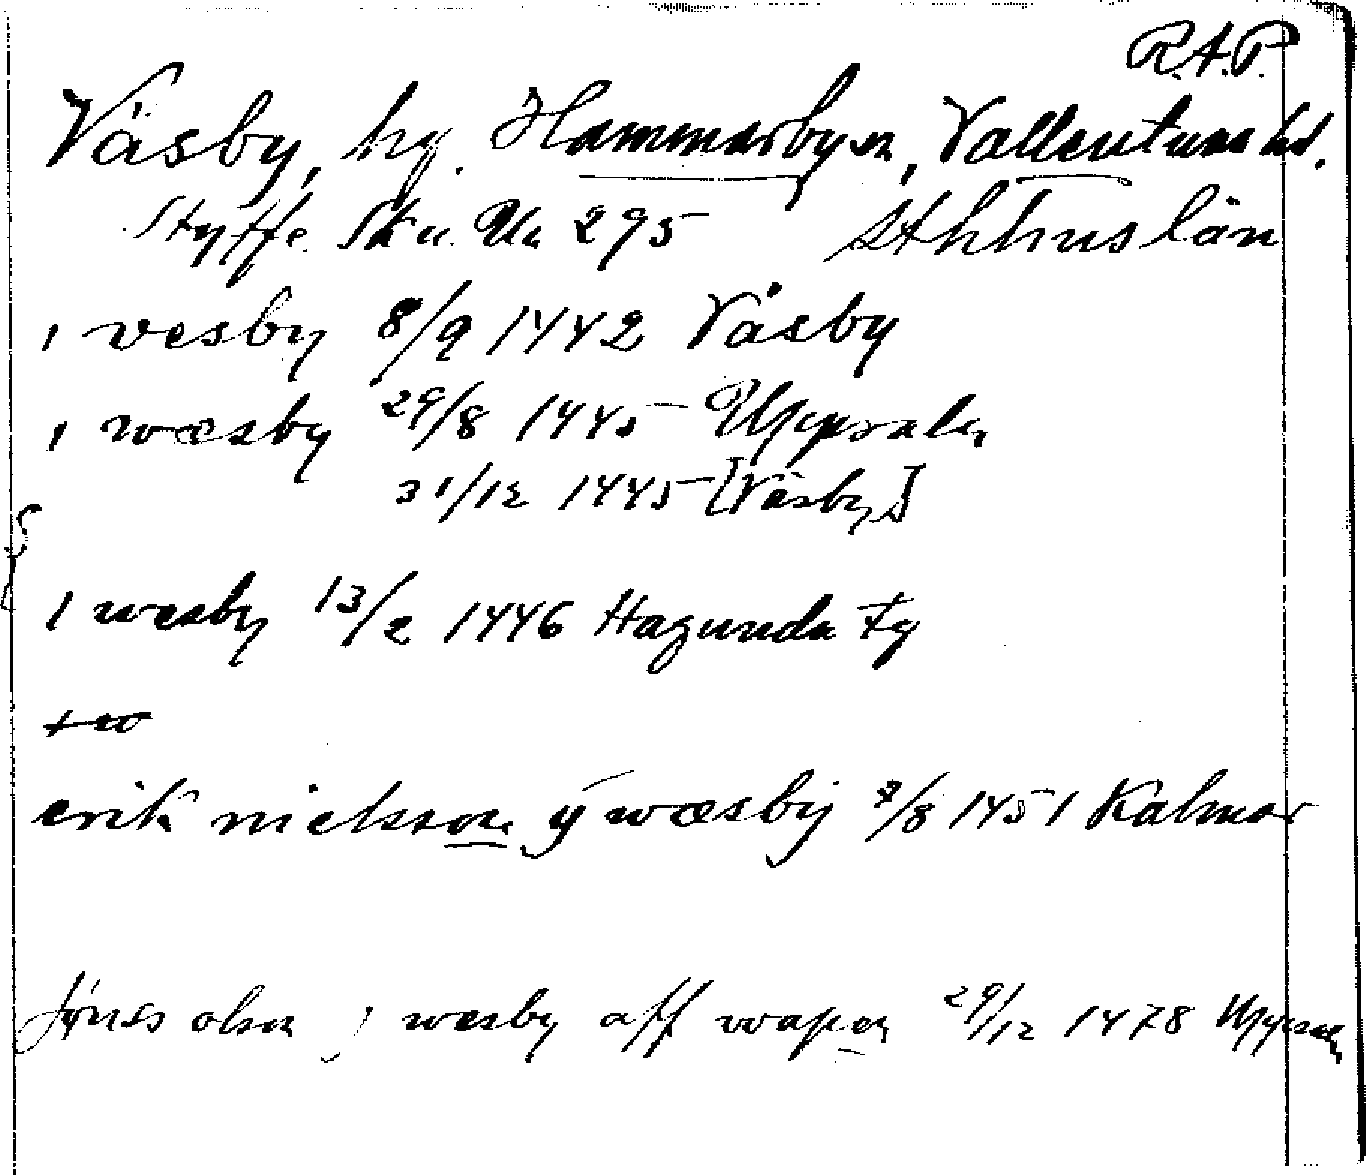 R.A.P.
Väsby, hg. Hammarby sn, Vallentuna hd.
Styffe. Sk. u. Un 295 Sthhus län
i vesby 8/9 1442 Väsby
i wæsby 29/8 1445 Uppsala
31/12 1445 [Väsby]
i wæsby 13/2 1446 Hagunda tg
erik nielsson ÿ wæsbÿ 7/8 1451 Kalmar
Jönss olson j wæsby aff wapen 29/12 1478 Uppsala